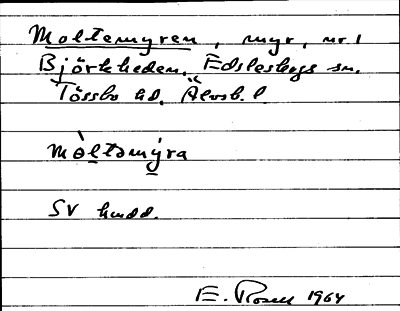 Moltemyren, myr, nr 1
Björkheden, Edsleskogs sn.
Tössbo hd. Älvsb. l.
mòltəmy̱ra
SV hmdd.
E. Rosell 1964